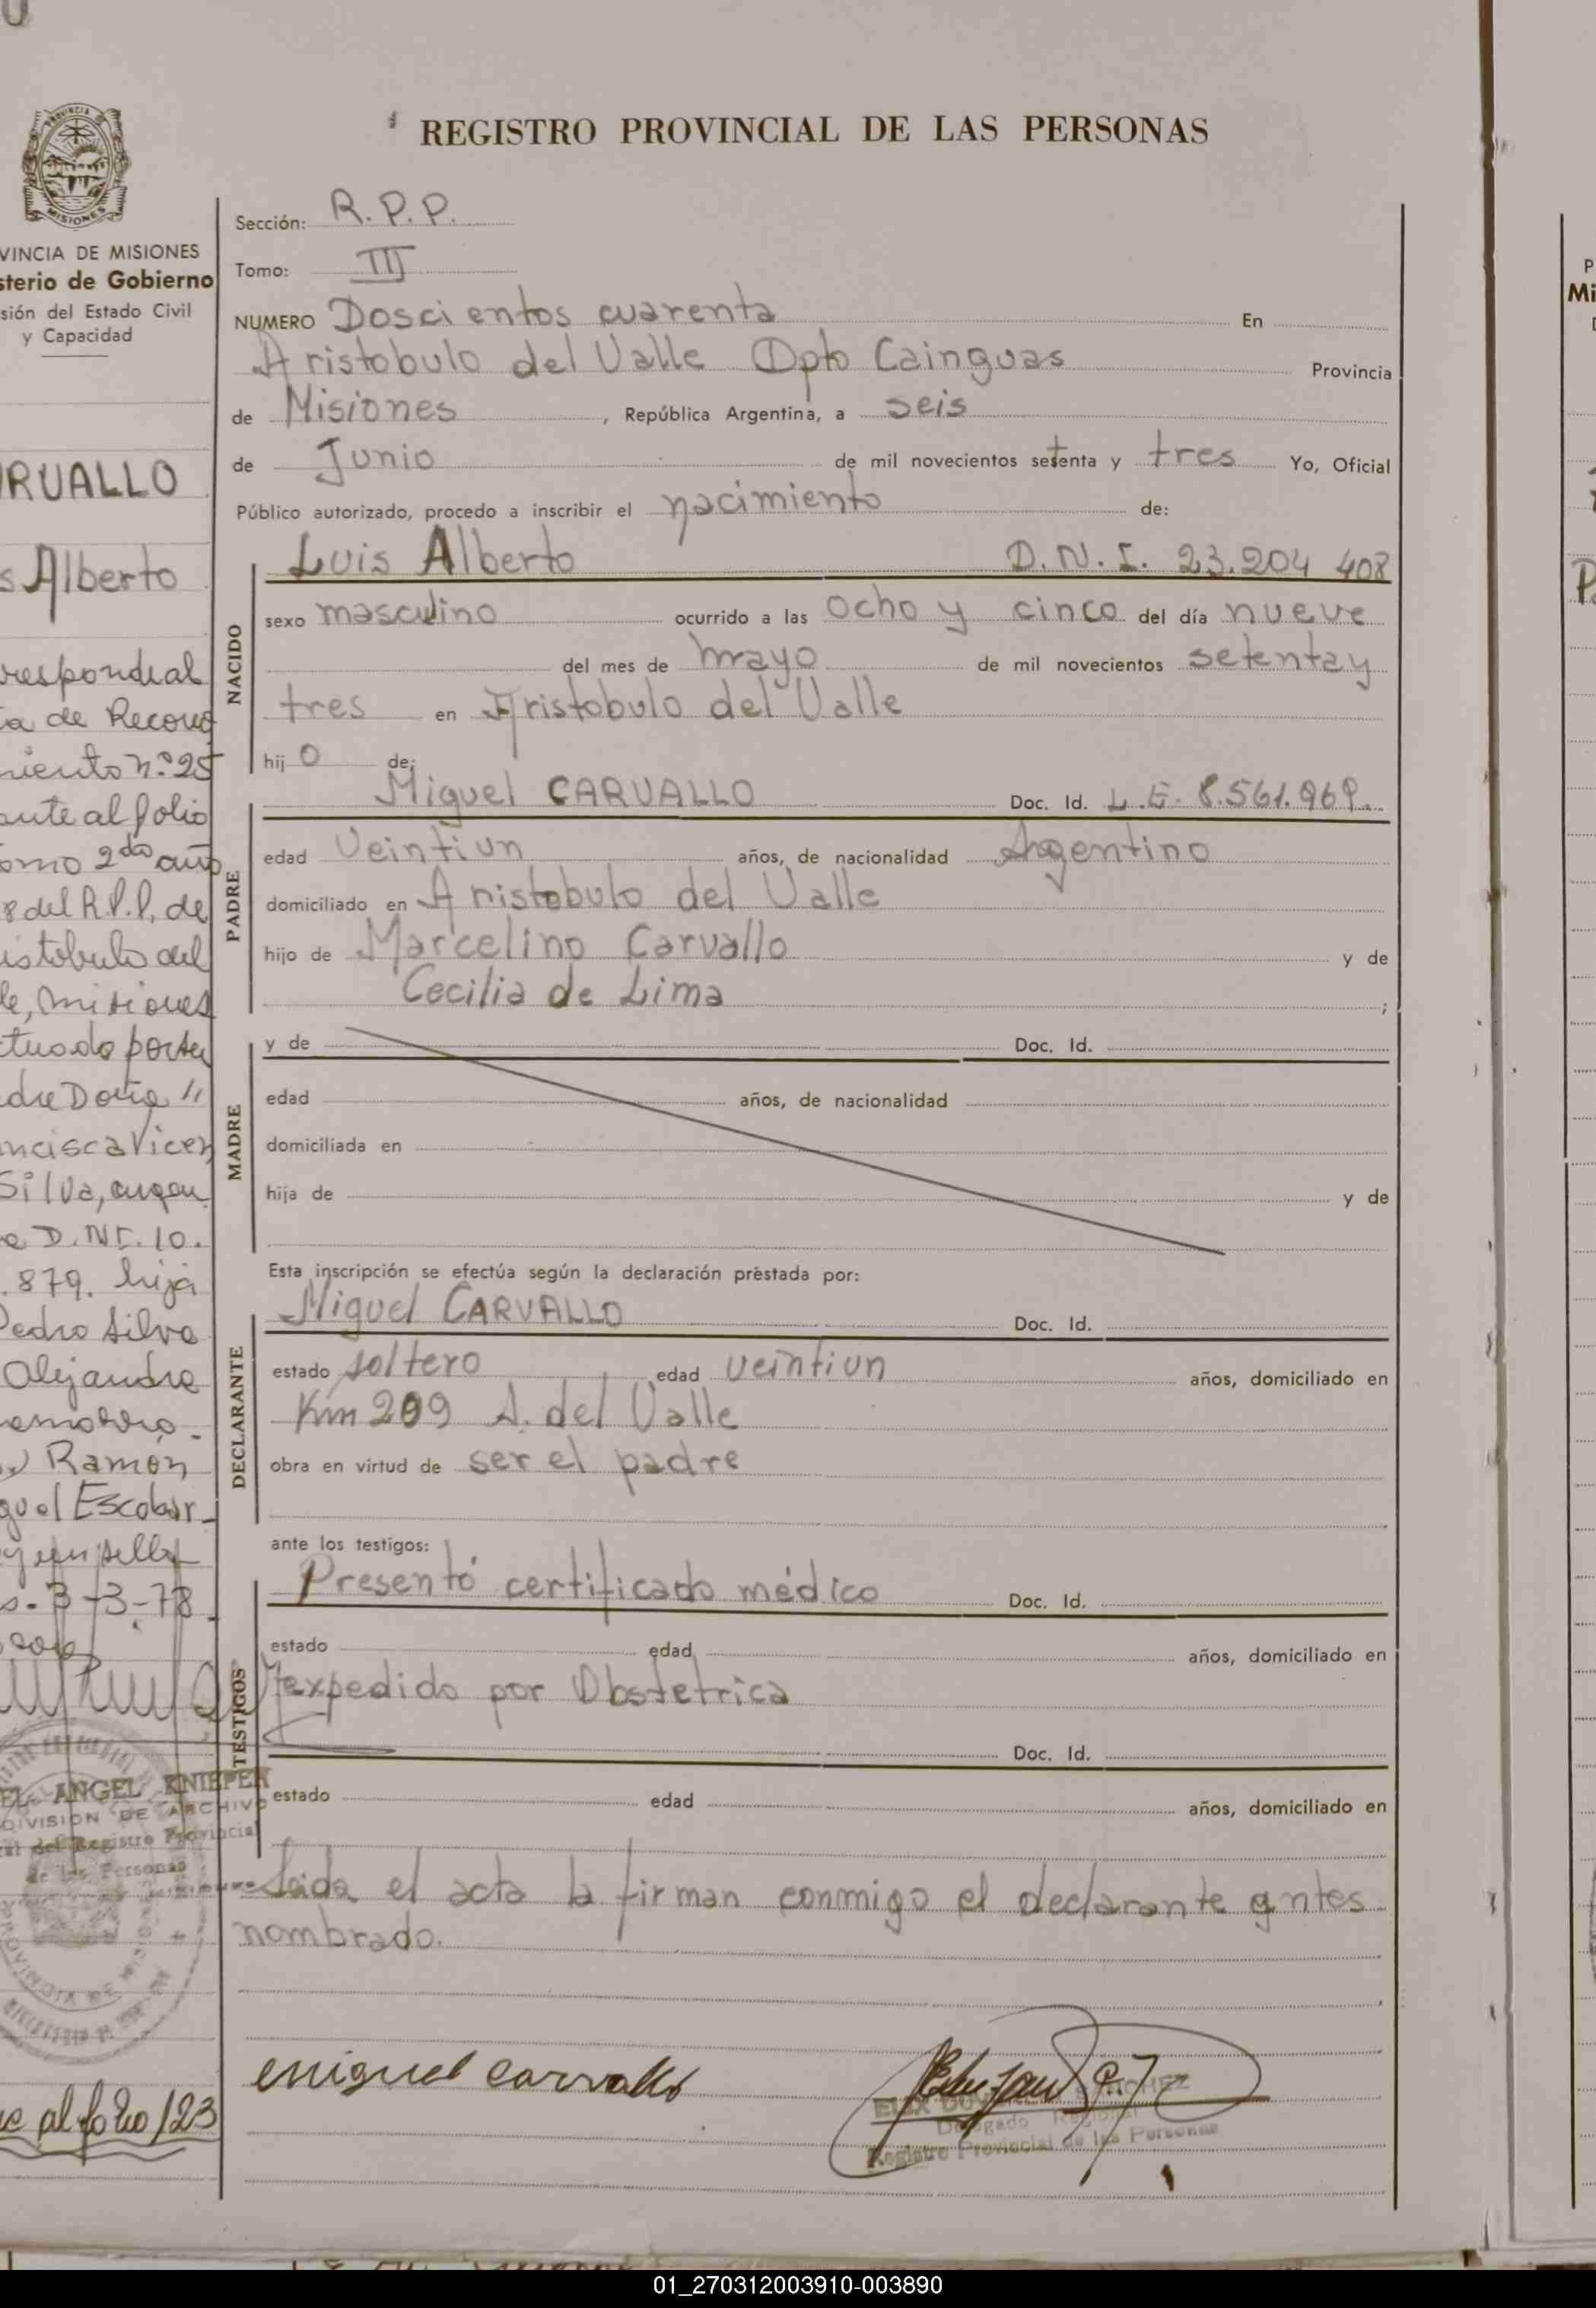 REGISTRO PROVINCIAL DE LAS PERSONAS
MISIONES
VINCIA DE MISIONES
sterio de Gobierno
sión del Estado Civil
y Capacidad
RVALLO
s Alberto
respondial
ta de Recono
miento n.º 25
ante al folio
omo 2do año
8 del R.P.P. de
istobulo del
le, Misiones
ctuado por su
dre Doña "
ncisca Vicen
Silva, argen
a D.NI. 10.
.879. hija
Pedro Silva
Alejandra
Ramón
guel Escobar.
y un sello
s. 3-3-78.
EL ANGEL KNIEPER
DIVISION DE ARCHIVO
ral del Registro Provincial
de las Personas
al folio 123
Sección: R.P.P.
Tomo: III
NUMERO Doscientos cuarenta En
Aristobulo del Valle Dpto Cainguas Provincia
de Misiones, República Argentina, a seis
de Junio de mil novecientos setenta y tres Yo, Oficial
Público autorizado, procedo a inscribir el nacimiento de:
NACIDO
Luis Alberto D.N.I. 23.204 408
sexo masculino ocurrido a las ocho y cinco del día nueve
del mes de mayo de mil novecientos setenta y
tres en Aristobulo del Valle
hij o de:
PADRE
Miguel CARVALLO Doc. Id. L.E. 8.561.969.
edad Veintiun años, de nacionalidad Argentino
domiciliado en Aristobulo del Valle
hijo de Marcelino Carvallo y de
Cecilia de Lima ;
MADRE
y de Doc. Id.
edad años, de nacionalidad
domiciliada en
hija de y de
Esta inscripción se efectúa según la declaración prestada por:
DECLARANTE
Miguel CARVALLO Doc. Id.
estado soltero edad veintiun años, domiciliado en
Km 209 A. del Valle
obra en virtud de ser el padre
ante los testigos:
TESTIGOS
Presentó certificado médico Doc. Id.
estado edad años, domiciliado en
expedido por Obstetrica
Doc. Id.
estado edad años, domiciliado en
Leida el acta la firman conmigo el declarante antes
nombrado.
miguel carvallo
SANCHEZ
Delegado Regional
Registro Provincial de las Personas
P
Mi
01_270312003910-003890